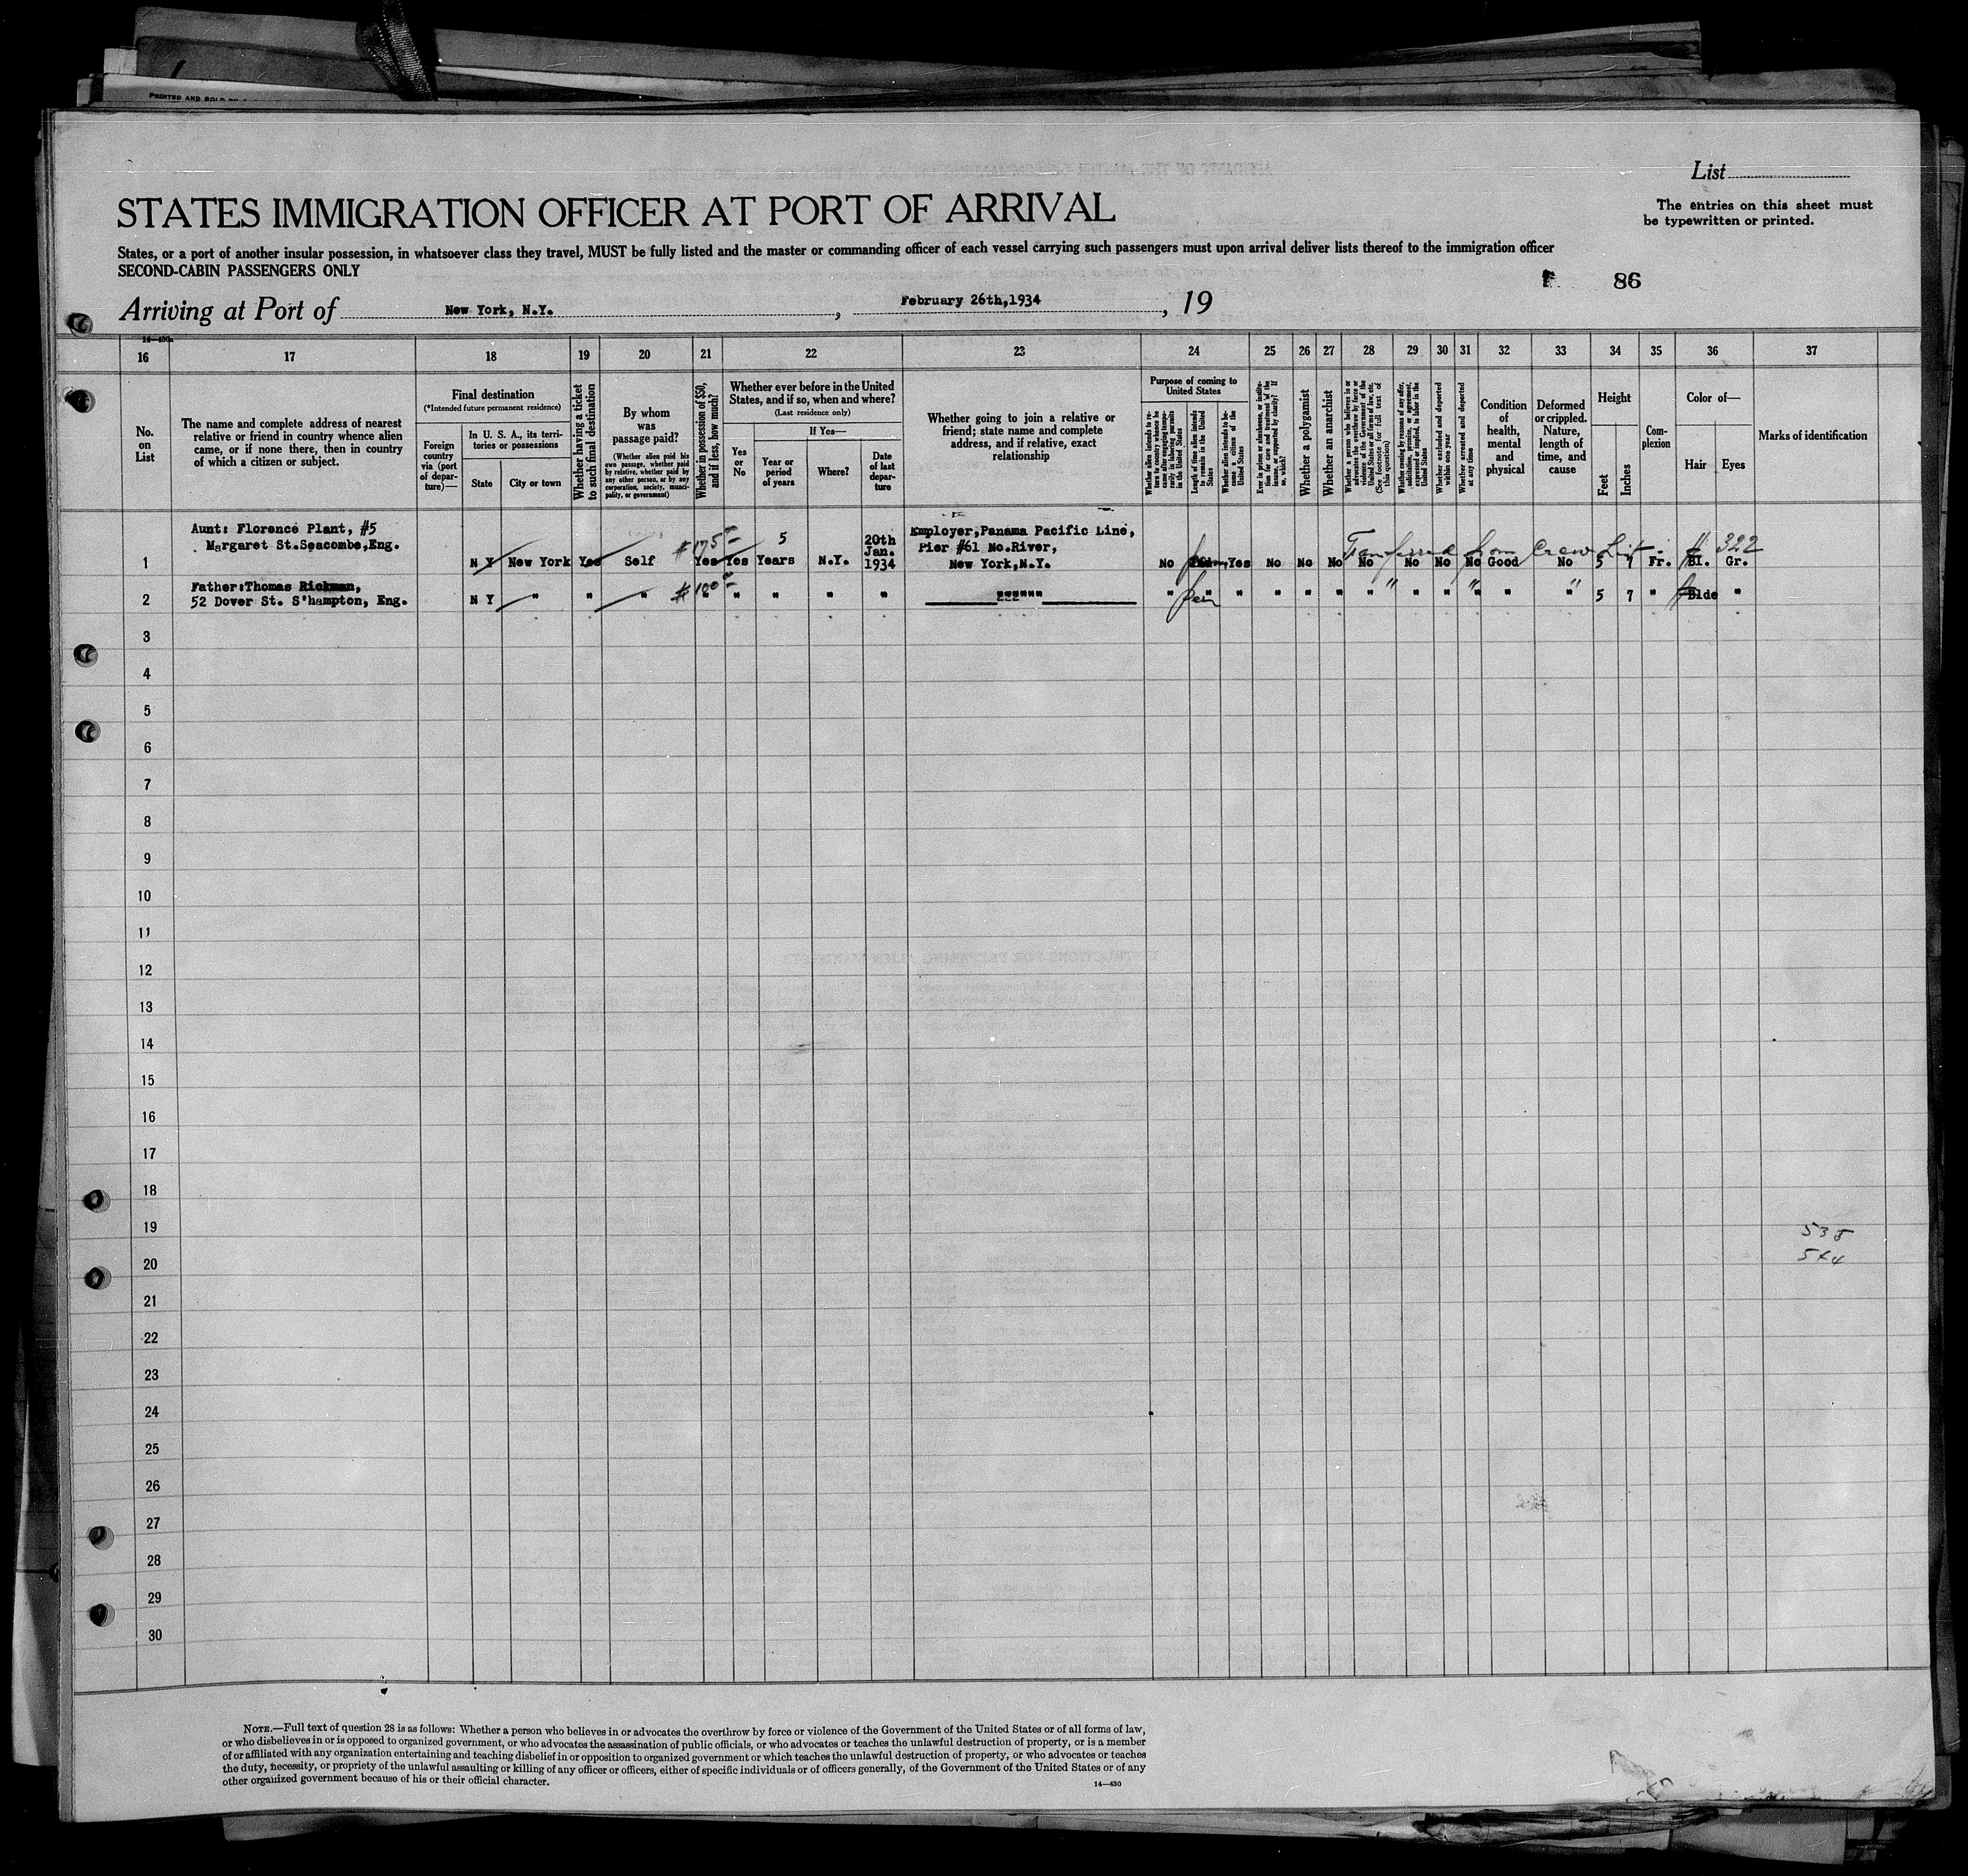 PRINTED AND SOLD BY
List
STATES IMMIGRATION OFFICER AT PORT OF ARRIVAL
The entries on this sheet must
be typewritten or printed.
States, or a port of another insular possession, in whatsoever class they travel, MUST be fully listed and the master or commanding officer of each vessel carrying such passengers must upon arrival deliver lists thereof to the immigration officer
SECOND-CABIN PASSENGERS ONLY
86
Arriving at Port of New York, N.Y. , February 26th,1934 , 19
16 17 18 19 20 21 22 23 24 25 26 27 28 29 30 31 32 33 34 35 36 37
No.
on
List
The name and complete address of nearest
relative or friend in country whence alien
came, or if none there, then in country
of which a citizen or subject.
Final destination
(*Intended future permanent residence)
Foreign
country
via (port
of depar-
ture)—
In U. S. A., its terri-
tories or possessions
State
City or town
Whether having a ticket
to such final destination
By whom
was
passage paid?
(Whether alien paid his
own passage, whether paid
by relative, whether paid by
any other person, or by any
corporation, society, munici-
pality, or government)
Whether in possession of $50,
and if less, how much?
Whether ever before in the United
States, and if so, when and where?
(Last residence only)
Yes
or
No
If Yes—
Year or
period
of years
Where?
Date
of last
depar-
ture
Whether going to join a relative or
friend; state name and complete
address, and if relative, exact
relationship
Purpose of coming to
United States
Whether alien intends to re-
turn to country whence he
came after engaging tempo-
rarily in laboring pursuits
in the United States
Length of time alien intends
to remain in the United
States
Whether alien intends to be-
come a citizen of the
United States
Ever in prison or almshouse, or institu-
tion for care and treatment of the
insane, or supported by charity? If
so, which?
Whether a polygamist
Whether an anarchist
Whether a person who believes in or
advocates the overthrow by force or
violence of the Government of the
United States or all forms of law, etc.
(See footnote for full text of
this question)
Whether coming by reason of any offer,
solicitation, promise, or agreement,
expressed or implied, to labor in the
United States
Whether excluded and deported
within one year
Whether arrested and deported
at any time
Condition
of
health,
mental
and
physical
Deformed
or crippled.
Nature,
length of
time, and
cause
Height
Feet
Inches
Com-
plexion
Color of—
Hair
Eyes
Marks of identification
Aunt: Florence Plant, #5
Margaret St.Seacombe,Eng.
1 N Y New York Yes Self $175 Yes Yes 5 Years N.Y. 20th Jan. 1934
Employer,Panama Pacific Line,
Pier #61 No.River,
New York,N.Y.
No Yes No No No No No No No Good No 5 7 Fr. Bl. Gr.
Transferred from Crew List - # 322
Father:Thomas Rickman,
52 Dover St. S'hampton, Eng.
2 N Y " " " $100 " " " " " """""" " " " " " " " " " " " " 5 7 " Blde "
3
4
5
6
7
8
9
10
11
12
13
14
15
16
17
18
19
20
21
22
23
24
25
26
27
28
29
30
NOTE.—Full text of question 28 is as follows: Whether a person who believes in or advocates the overthrow by force or violence of the Government of the United States or of all forms of law,
or who disbelieves in or is opposed to organized government, or who advocates the assassination of public officials, or who advocates or teaches the unlawful destruction of property, or is a member
of or affiliated with any organization entertaining and teaching disbelief in or opposition to organized government or which teaches the unlawful destruction of property, or who advocates or teaches
the duty, necessity, or propriety of the unlawful assaulting or killing of any officer or officers, either of specific individuals or of officers generally, of the Government of the United States or of any
other organized government because of his or their official character.
14—430